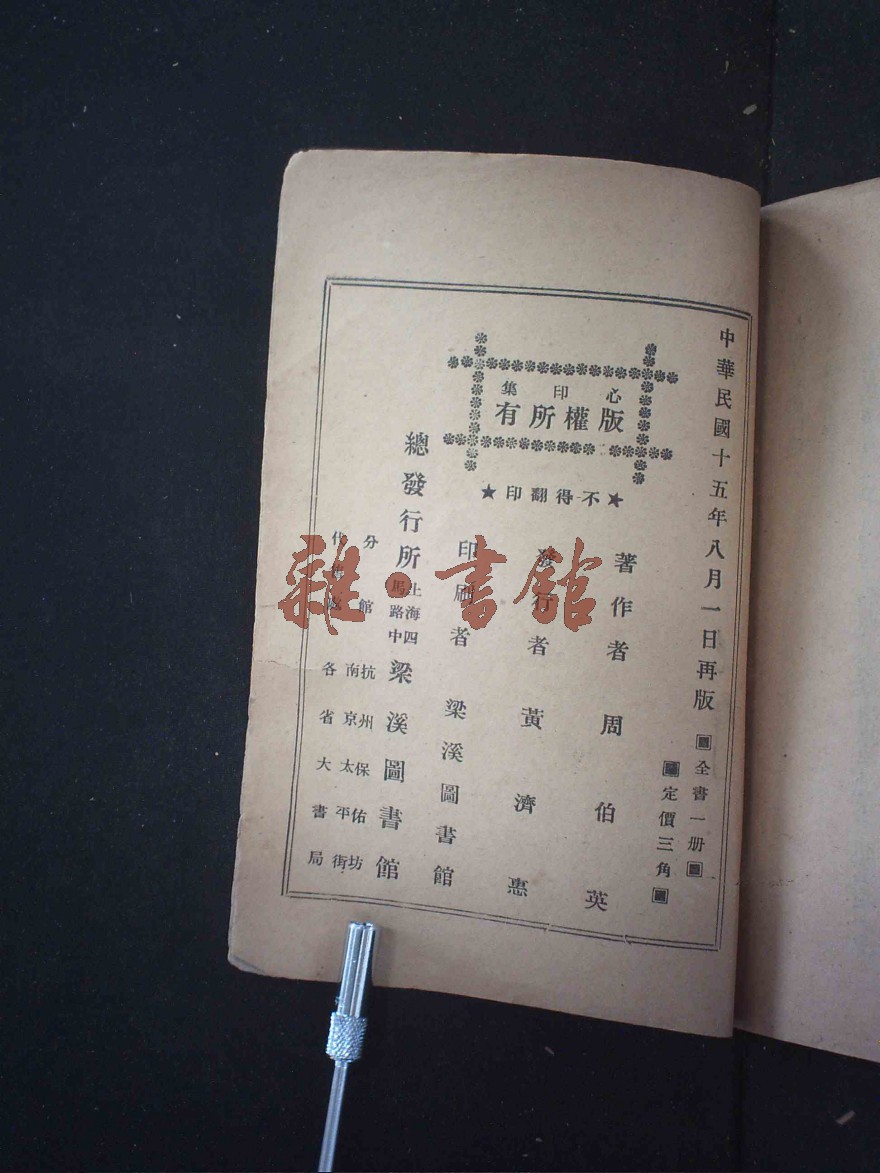 中華民國十五年八月一日再版
▣全書一册▣
▣定價三角▣
心印集
版權所有
★不得翻印★
著作者 周伯英
發行者 黃濟惠
印刷者 梁溪圖書館
總發行所 上海四馬路中 梁溪圖書館
分館 抗州保佑坊 南京太平街
各省大書局
雜·書館